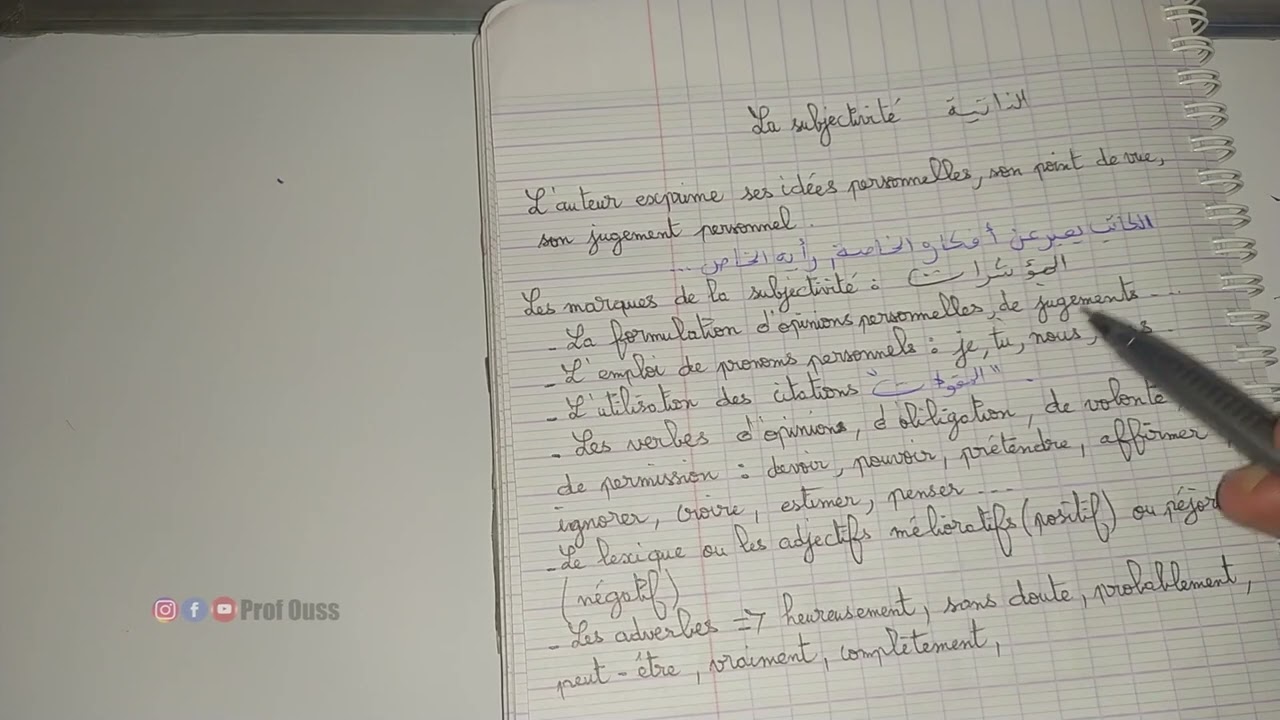 La subjectivité الذاتية
L'auteur exprime ses idées personnelles, son point de vue,
son jugement personnel.
الكاتب يعبر عن أفكاره الخاصة, رأيه الخاص...
Les marques de la subjectivité : المؤشرات
- La formulation d'opinions personnelles, de jugements ...
- L'emploi de pronoms personnels : je, tu, nous,
- L'utilisation des citations "
- Les verbes d'opinions, d'obligation, de volonté,
de permission : devoir, pouvoir, prétendre, affirmer,
ignorer, croire, estimer, penser ...
- Le lexique ou les adjectifs mélioratifs (positif) ou
(négatif)
- Les adverbes => heureusement, sans doute, probablement,
peut-être, vraiment, complètement,
Prof Ouss